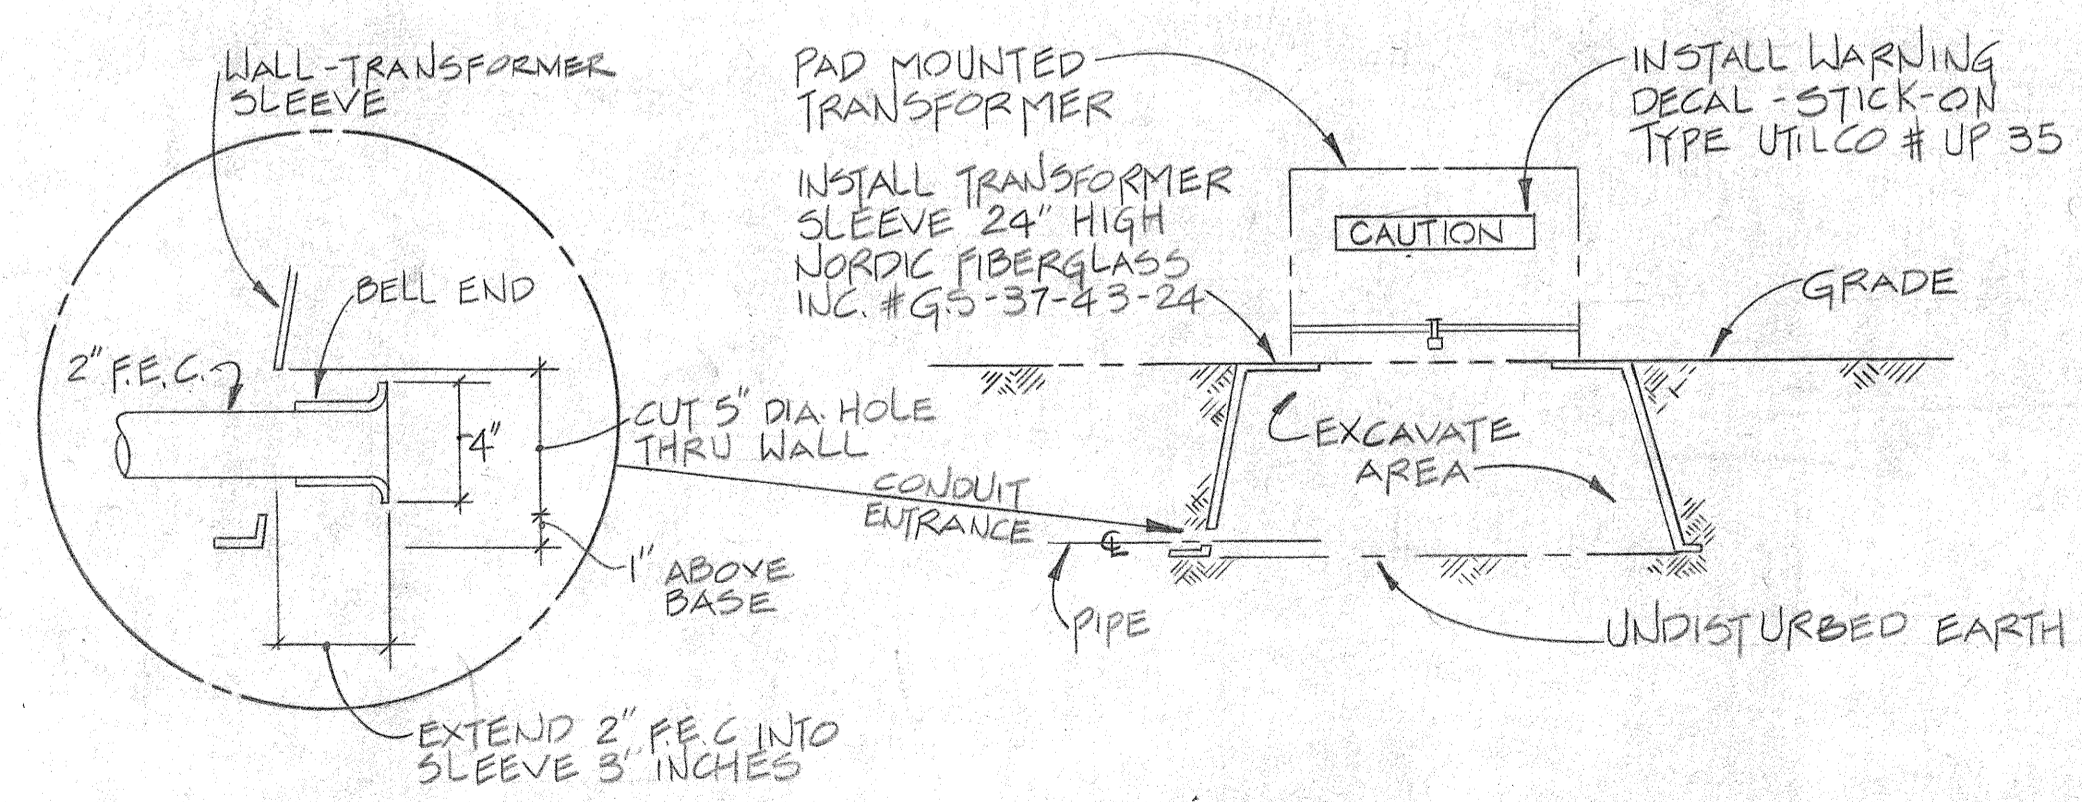 WALL-TRANSFORMER
SLEEVE
BELL END
2" F.E.C.
4"
CUT 5" DIA. HOLE
THRU WALL
1" ABOVE
BASE
EXTEND 2" F.E.C INTO
SLEEVE 3" INCHES
PAD MOUNTED
TRANSFORMER
INSTALL TRANSFORMER
SLEEVE 24" HIGH
NORDIC FIBERGLASS
INC. # G.S-37-43-24
INSTALL WARNING
DECAL-STICK-ON
TYPE UTILCO # UP 35
CAUTION
GRADE
EXCAVATE
AREA
CONDUIT
ENTRANCE
CL
PIPE
UNDISTURBED EARTH